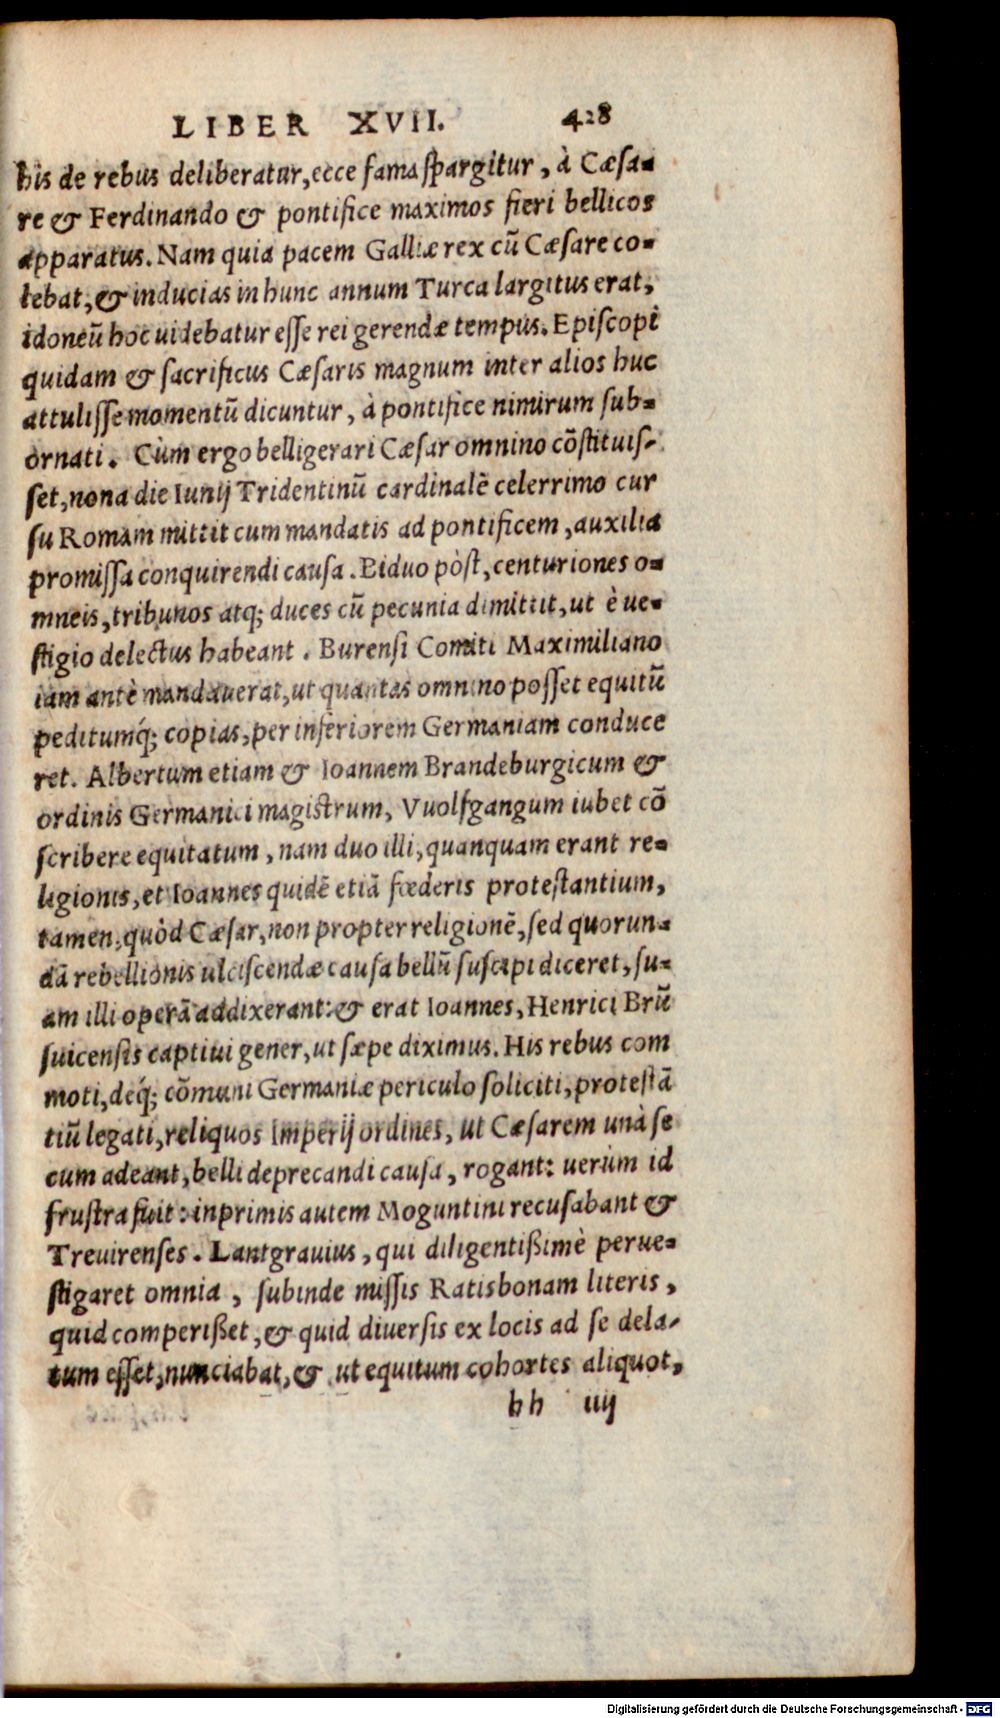 LIBER XVII. 428
his de rebus deliberatur, ecce fama spargitur, à Cæsa-
re & Ferdinando & pontifice maximos fieri bellicos
apparatus. Nam quia pacem Galliæ rex cũ Cæsare co-
lebat, & inducias in hunc annum Turca largitus erat,
idoneũ hoc uidebatur esse rei gerendæ tempus. Episcopi
quidam & sacrificus Cæsaris magnum inter alios huc
attulisse momentũ dicuntur, à pontifice nimirum sub-
ornati. Cùm ergo belligerari Cæsar omnino cõstituis-
set, nona die Iunij Tridentinũ cardinalẽ celerrimo cur
su Romam mittit cum mandatis ad pontificem, auxilia
promissa conquirendi causa. Biduo pòst, centuriones o-
mneis, tribunos atq; duces cũ pecunia dimittit, ut è ue-
stigio delectus habeant. Burensi Comiti Maximiliano
iam antè mandauerat, ut quantas omnino posset equitũ
peditumq́; copias, per inferiorem Germaniam conduce
ret. Albertum etiam & Ioannem Brandeburgicum &
ordinis Germanici magistrum, Vuolfgangum iubet cõ
scribere equitatum, nam duo illi, quanquam erant re-
ligionis, et Ioannes quidẽ etiã fœderis protestantium,
tamen, quòd Cæsar, non propter religionẽ, sed quorun-
dã rebellionis ulciscendæ causa bellũ suscipi diceret, su-
am illi operã addixerant: & erat Ioannes, Henrici Brũ
suicensis captiui gener, ut sæpe diximus. His rebus com
moti, deq́; cõmuni Germaniæ periculo soliciti, protestã
tiũ legati, reliquos Imperij ordines, ut Cæsarem unà se
cum adeant, belli deprecandi causa, rogant: uerùm id
frustra fuit: inprimis autem Moguntini recusabant &
Treuirenses. Lantgrauius, qui diligentißimè perue-
stigaret omnia, subinde missis Ratisbonam literis,
quid comperißet, & quid diuersis ex locis ad se dela-
tum esset, nunciabat, & ut equitum cohortes aliquot,
hh iiij
Digitalisierung gefördert durch die Deutsche Forschungsgemeinschaft - DFG